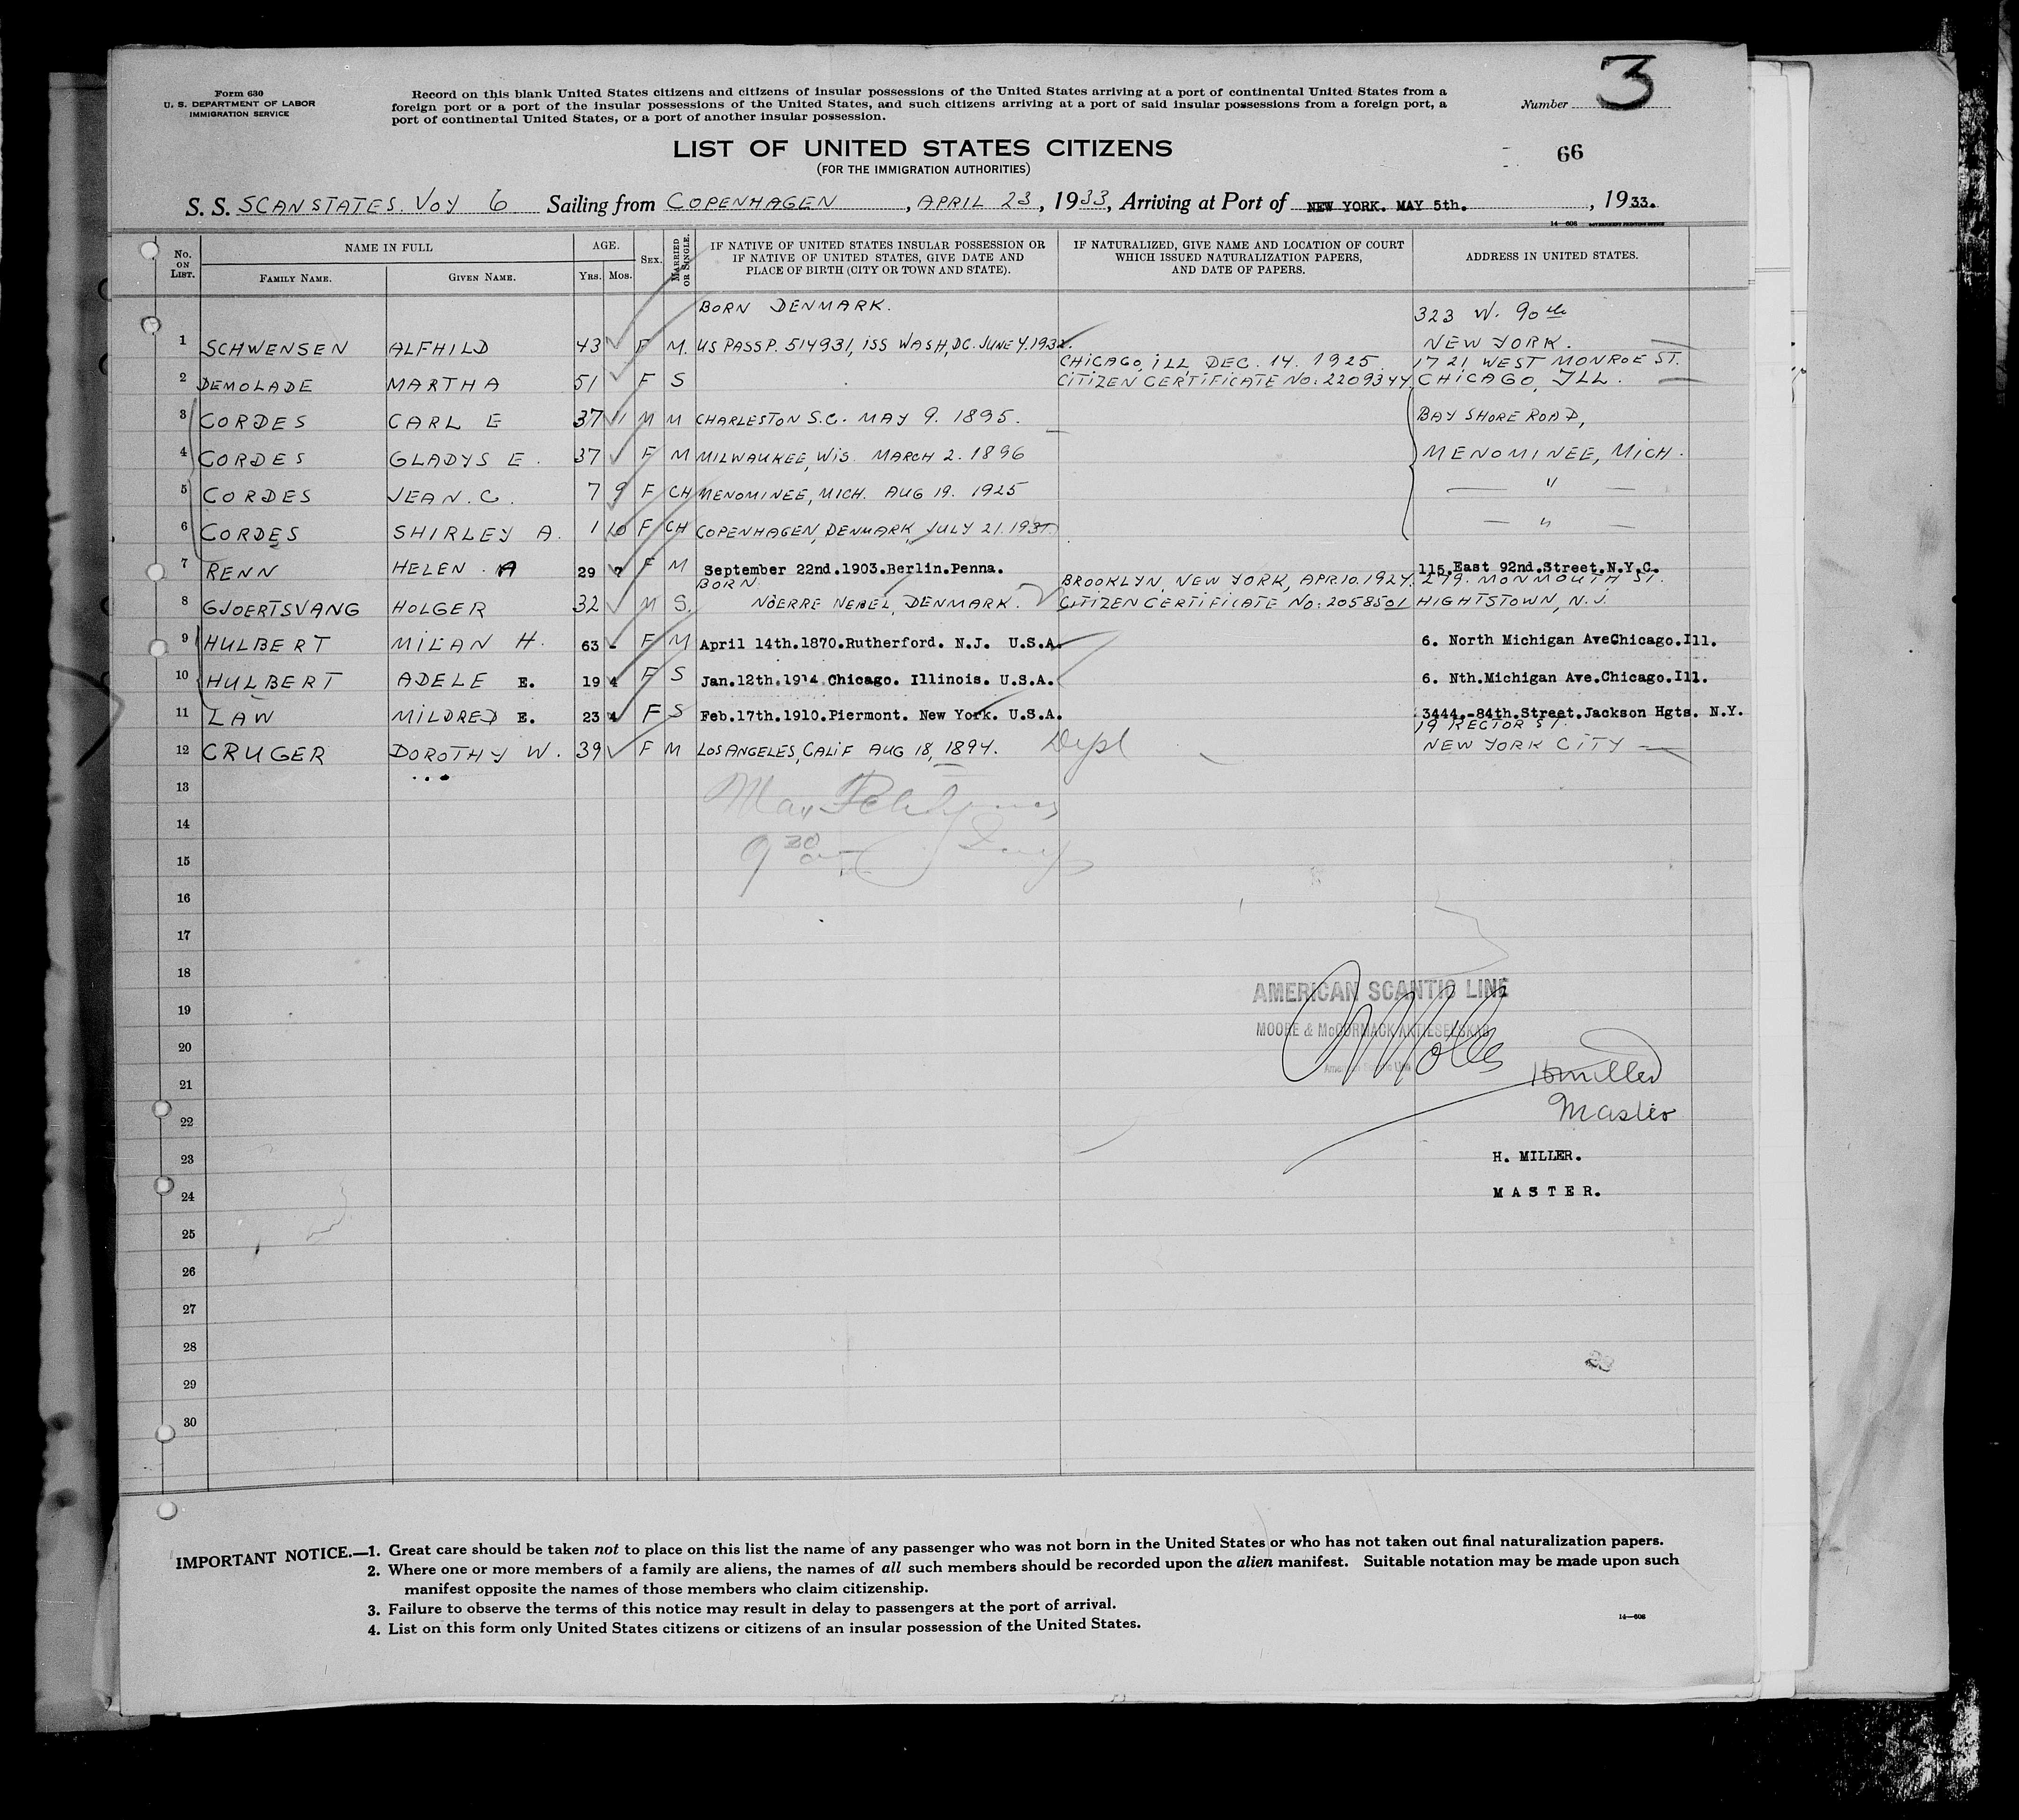 Form 630
U. S. DEPARTMENT OF LABOR
IMMIGRATION SERVICE
Record on this blank United States citizens and citizens of insular possessions of the United States arriving at a port of continental United States from a
foreign port or a port of the insular possessions of the United States, and such citizens arriving at a port of said insular possessions from a foreign port, a
port of continental United States, or a port of another insular possession.
Number 3
LIST OF UNITED STATES CITIZENS
(FOR THE IMMIGRATION AUTHORITIES)
66
S. S. SCANSTATES. VOY 6 Sailing from COPENHAGEN, APRIL 23, 1933, Arriving at Port of NEW YORK. MAY 5th., 1933.
14-608 GOVERNMENT PRINTING OFFICE
No. ON LIST. NAME IN FULL FAMILY NAME. GIVEN NAME. AGE. YRS. MOS. SEX. MARRIED OR SINGLE. IF NATIVE OF UNITED STATES INSULAR POSSESSION OR IF NATIVE OF UNITED STATES, GIVE DATE AND PLACE OF BIRTH (CITY OR TOWN AND STATE). IF NATURALIZED, GIVE NAME AND LOCATION OF COURT WHICH ISSUED NATURALIZATION PAPERS, AND DATE OF PAPERS. ADDRESS IN UNITED STATES.
BORN DENMARK. 323 W. 90th
1 SCHWENSEN ALFHILD 43 F M. US PASSP. 514931, ISS WASH, DC. JUNE 4. 1932. NEW YORK.
CHICAGO, ILL DEC. 14. 1925 1721 WEST MONROE ST.
2 DEMOLADE MARTHA 51 F S CITIZEN CERTIFICATE No: 2209344 CHICAGO, ILL.
3 CORDES CARL E 37 11 M M CHARLESTON S.C. MAY 9. 1895. BAY SHORE ROAD,
4 CORDES GLADYS E. 37 F M MILWAUKEE, WIS. MARCH 2. 1896 MENOMINEE, MICH.
5 CORDES JEAN. C. 7 9 F CH MENOMINEE, MICH. AUG 19. 1925 — " —
6 CORDES SHIRLEY A. 1 10 F CH COPENHAGEN, DENMARK, JULY 21. 1931. — " —
7 RENN HELEN. A 29 7 F M September 22nd.1903.Berlin.Penna. 115.East 92nd.Street.N.Y.C.
BORN BROOKLYN, NEW YORK, APR 10. 1924. 279. MONMOUTH ST.
8 GJOERTSVANG HOLGER 32 M S. NÖERRE NEBEL, DENMARK. CITIZEN CERTIFICATE No: 2058501 HIGHTSTOWN, N.J.
9 HULBERT MILAN H. 63 - F M April 14th.1870.Rutherford. N.J. U.S.A. 6. North Michigan AveChicago.Ill.
10 HULBERT ADELE E. 19 4 F S Jan.12th.1914.Chicago. Illinois. U.S.A. 6. Nth.Michigan Ave.Chicago.Ill.
11 LAW MILDRED E. 23 4 F S Feb.17th.1910.Piermont. New York. U.S.A. 3444.-84th.Street.Jackson Hgts. N.Y.
19 RECTOR ST.
12 CRUGER DOROTHY W. 39 F M LOS ANGELES, CALIF AUG 18, 1894. Dept NEW YORK CITY
13
14
15
9 30
16
17
18
AMERICAN SCANTIC LINE
19
MOORE & McCORMACK AKTIESELSKAB
20
American Scantic Line
21
H Miller
22
Master
23
H. MILLER.
24
MASTER.
25
26
27
28
29
30
IMPORTANT NOTICE.—1. Great care should be taken not to place on this list the name of any passenger who was not born in the United States or who has not taken out final naturalization papers.
2. Where one or more members of a family are aliens, the names of all such members should be recorded upon the alien manifest. Suitable notation may be made upon such
manifest opposite the names of those members who claim citizenship.
3. Failure to observe the terms of this notice may result in delay to passengers at the port of arrival.
4. List on this form only United States citizens or citizens of an insular possession of the United States.
14-608